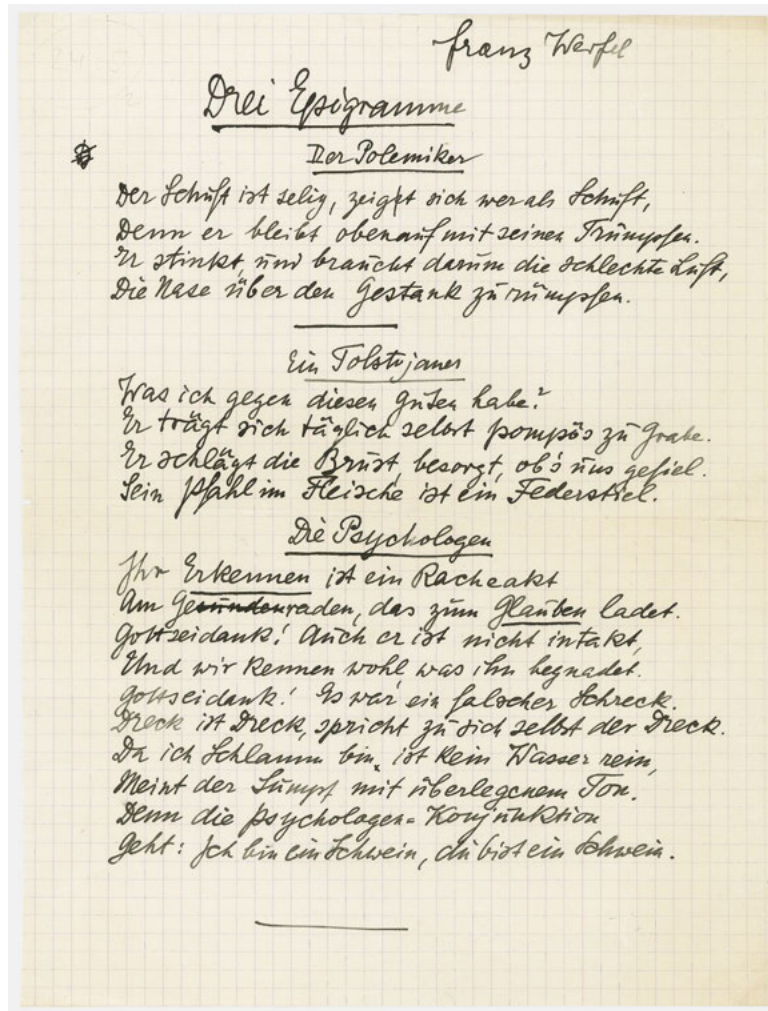 Franz Werfel
Drei Epigramme
Der Polemiker
Der Schuft ist selig, zeigt sich wer als Schuft,
Denn er bleibt obenauf mit seinen Trümpfen.
Er stinkt, und braucht darum die schlechte Luft,
Die Nase über den Gestank zu rümpfen.
Ein Tolstojaner
Was ich gegen diesen Guten habe?
Er trägt sich täglich selbst pompös zu Grabe.
Er schlägt die Brust, besorgt, ob's uns gefiel.
Sein Pfahl im Fleische ist ein Federstiel.
Die Psychologen
Ihr Erkennen ist ein Racheakt
Am Geraden, das zum Glauben ladet.
Gottseidank! Auch er ist nicht intakt,
Und wir kennen wohl, was ihn begnadet.
Gottseidank! Es war ein falscher Schreck.
Dreck ist Dreck, spricht zu sich selbst der Dreck.
Da ich Schlamm bin, ist kein Wasser rein,
Meint der Sumpf mit überlegenem Ton.
Denn die Psychologen-Konjunktion
Geht: Ich bin ein Schwein, du bist ein Schwein.